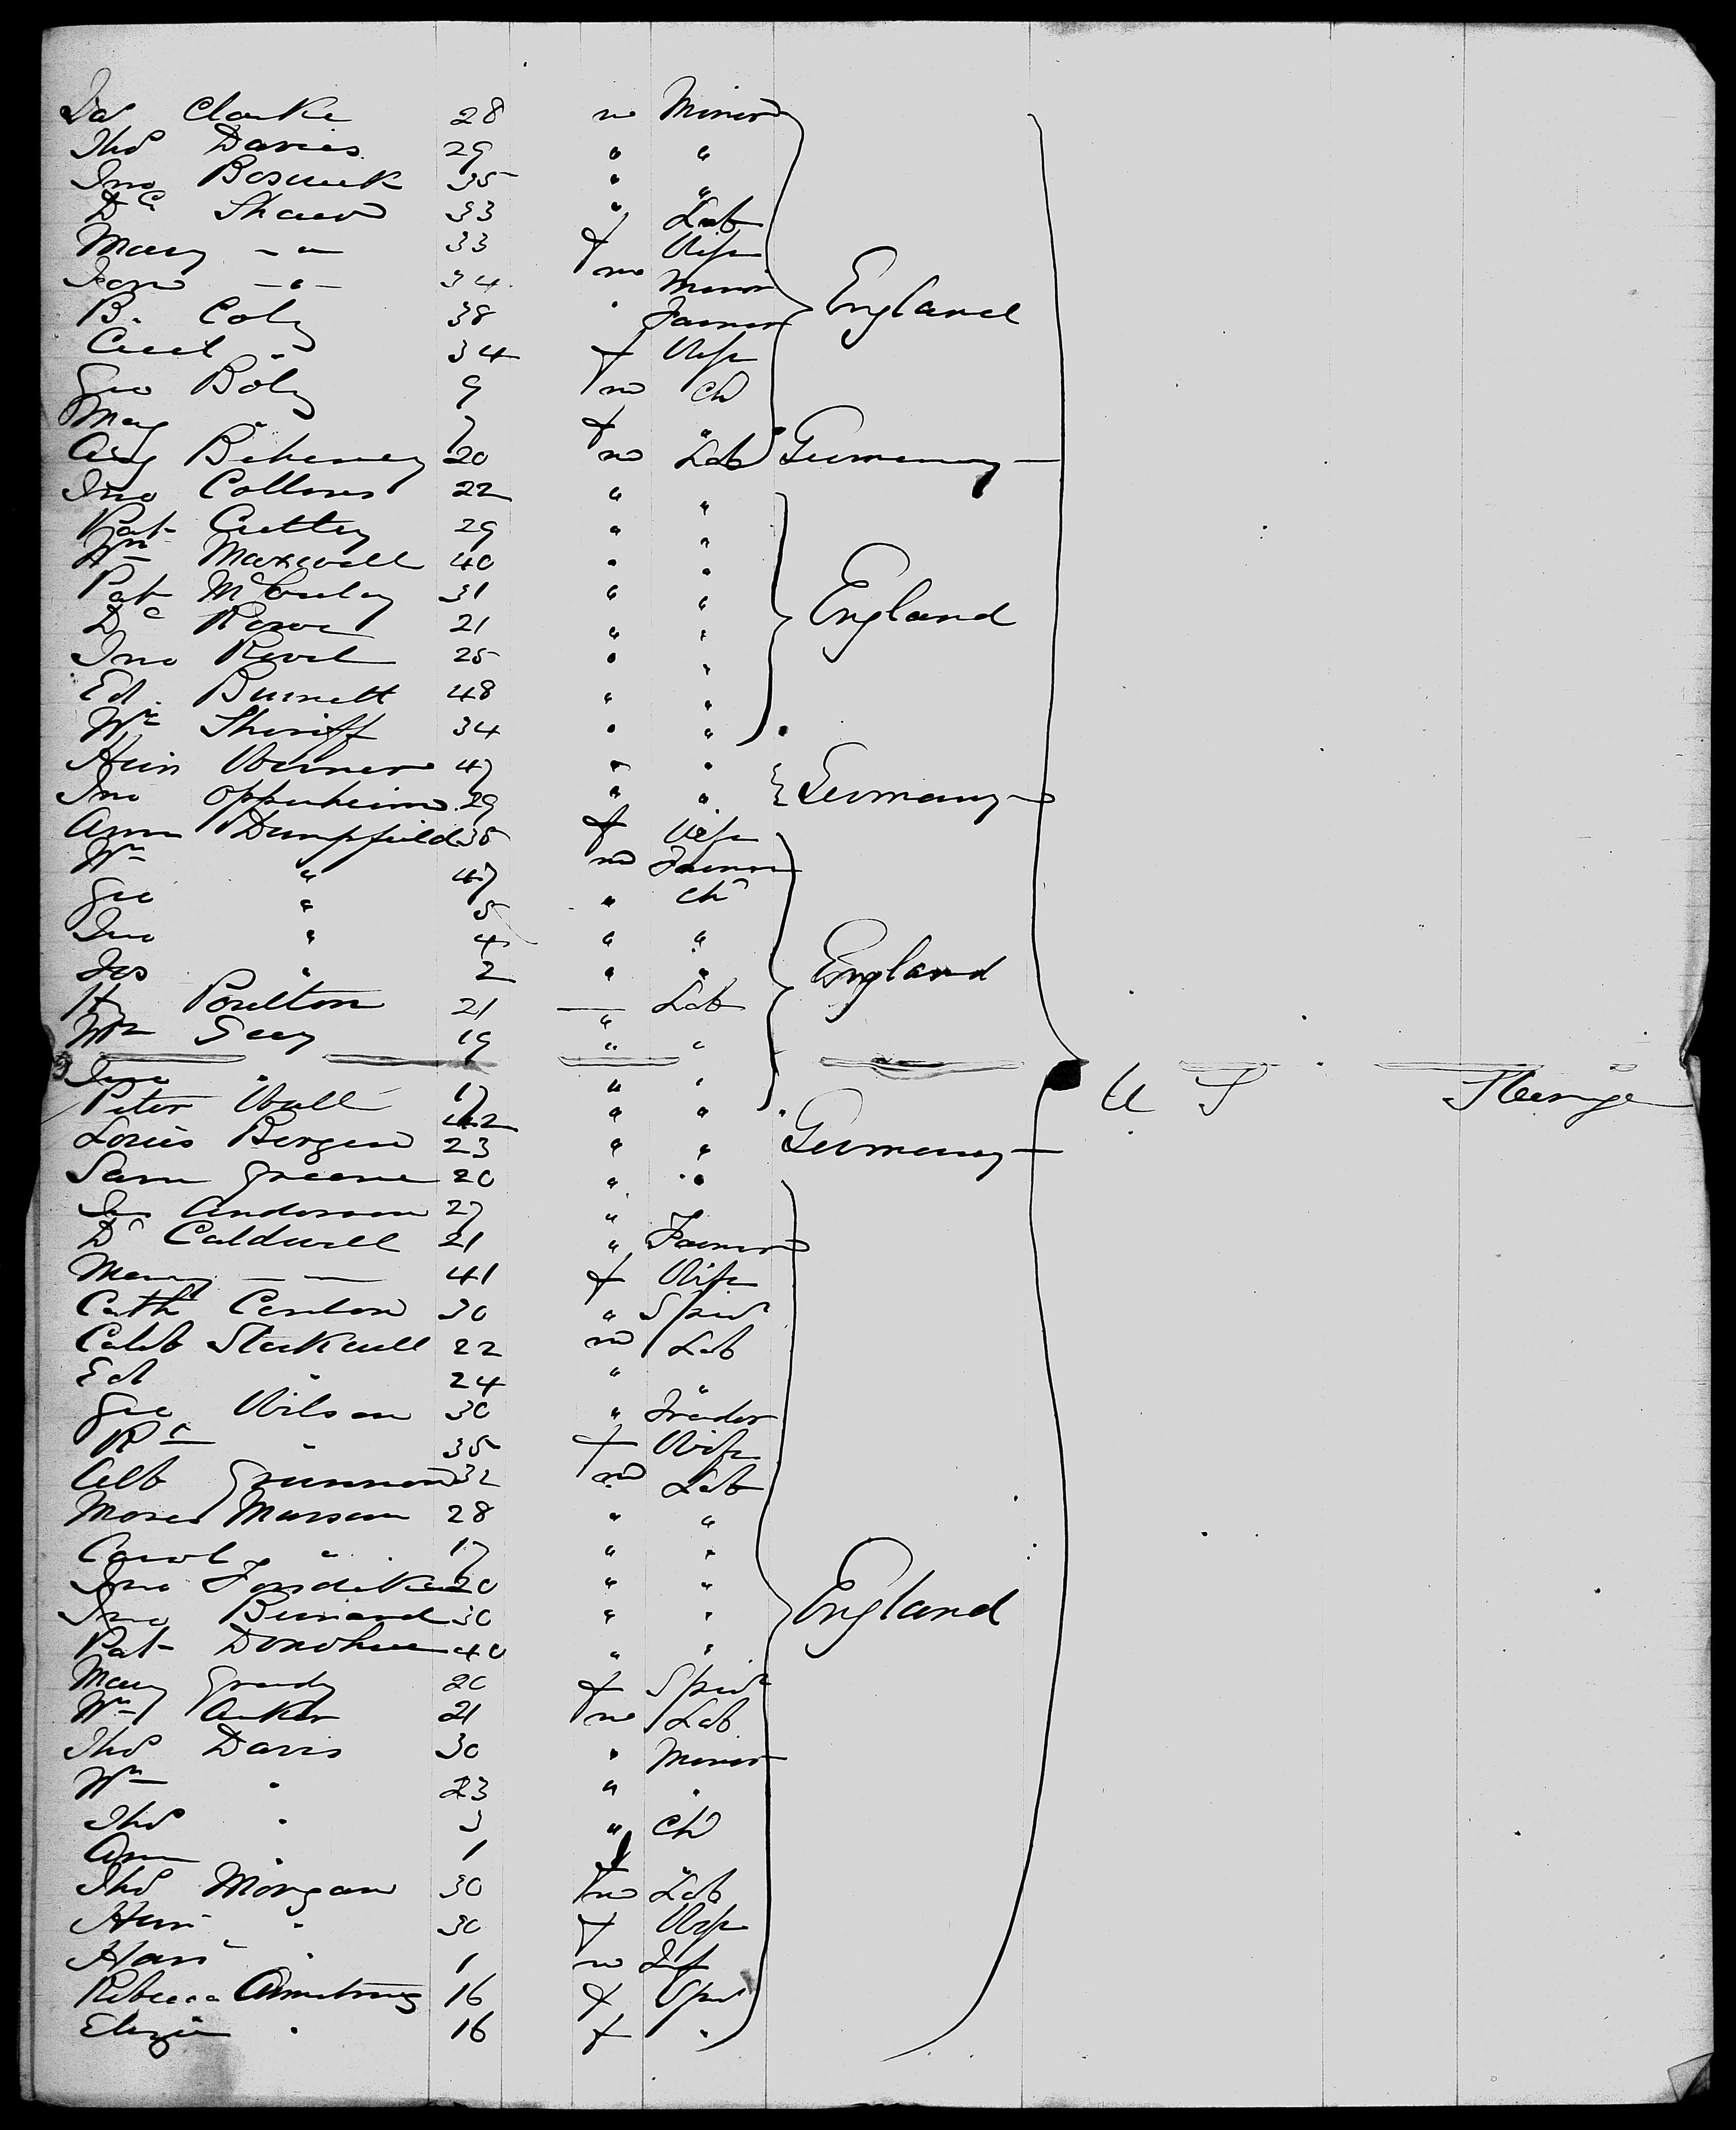 Jas Clarke 28 m Miner
Thos Davies 29 " "
Jno 35 " "
Dd Shaw 33 " Lab
Mary -"- 33 f Wife
-"- 34 m Miner
B. Coly 38 " Farmer England
Cecel " 34 f Wife
Geo Boly 9 m Ch
Mag " 7 f "
Aug 20 m Lab Germany
Jno Collins 22 " "
Pat 29 " "
Wm Maxwell 40 " "
Pat McCauley 31 " " England
Dd Rowe 21 " "
Jno 25 " "
Ed. Burnett 48 " "
Wm Sheriff 34 " "
Hein Werner 47 " "
Jno Oppenheim 29 " " Germany
Ann Dumpfield 35 f Wife
Wm " 47 m Farmer
Geo " 5 " Ch
Jno " 4 " "
Jos " 2 " " England
Hy Poulton 21 " Lab
Wm 19 " "
Jno " 17 " "
Peter Wall 42 " " U S
Louis Bergen 23 " " Germany
Sam Greene 20 " "
Jas Anderson 27 "
Dd Caldwell 21 " Farmer
Mary -"- 41 f Wife
Cath 30 " Spinr
Caleb Stockwell 22 m Lab
Ed " 24 " "
Geo Wilson 30 " Trader
" 35 f Wife
Alb 32 m Lab
Moses 28 " "
Carol " 17 " "
Jno 20 " " England
Jno 30 " "
Pat Donohue 40 " "
Mary Grady 20 f Spinr
Wm Anker 21 m Lab
Thos Davis 30 " Miner
Wm " 23 " "
Thos " 3 " Ch
Ann " 1 f "
Thos Morgan 30 m Lab
" 30 f Wife
" 1 m Inf
Rebecca Armstrong 16 f Spin
" 16 f "